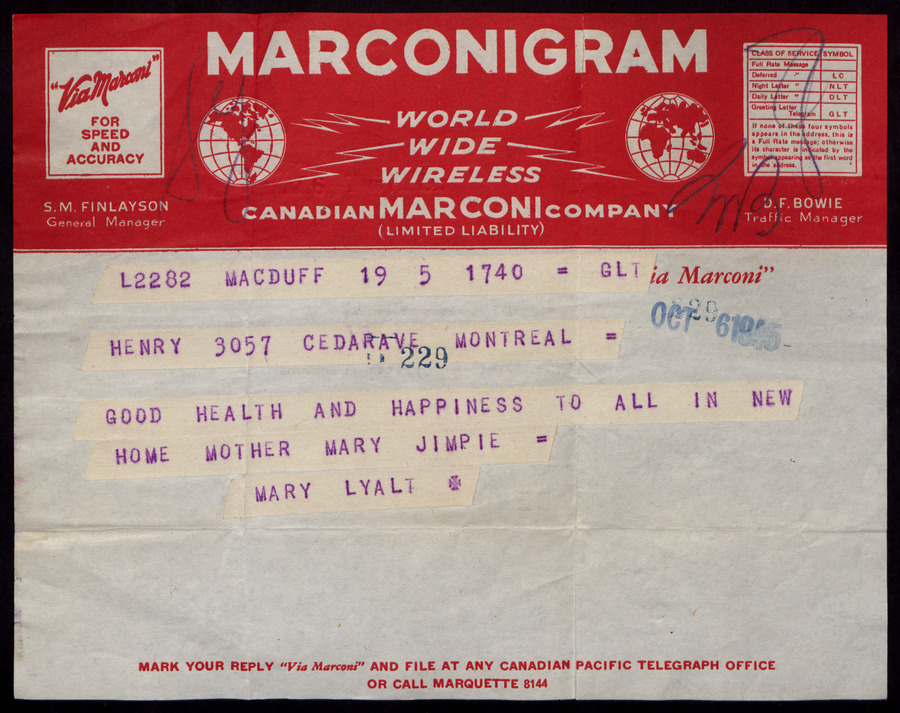 MARCONIGRAM
"Via Marconi"
FOR
SPEED
AND
ACCURACY
WORLD
WIDE
WIRELESS
CANADIAN MARCONI COMPANY
(LIMITED LIABILITY)
S.M. FINLAYSON
General Manager
CLASS OF SERVICE SYMBOL
Full Rate Message
Deferred " LC
Night Letter " NLT
Daily Letter " DLT
Greeting Letter
Telegram GLT
If none of these four symbols
appears in the address, this is
a Full Rate message; otherwise
its character is indicated by the
symbol appearing as the first word
in the address.
D.F. BOWIE
Traffic Manager
L2282 MACDUFF 19 5 1740 = GLT
ia Marconi"
229
OCT 6 1945
HENRY 3057 CEDARAVE MONTREAL =
229
GOOD HEALTH AND HAPPINESS TO ALL IN NEW
HOME MOTHER MARY JIMPIE =
MARY LYALT
MARK YOUR REPLY "Via Marconi" AND FILE AT ANY CANADIAN PACIFIC TELEGRAPH OFFICE
OR CALL MARQUETTE 8144